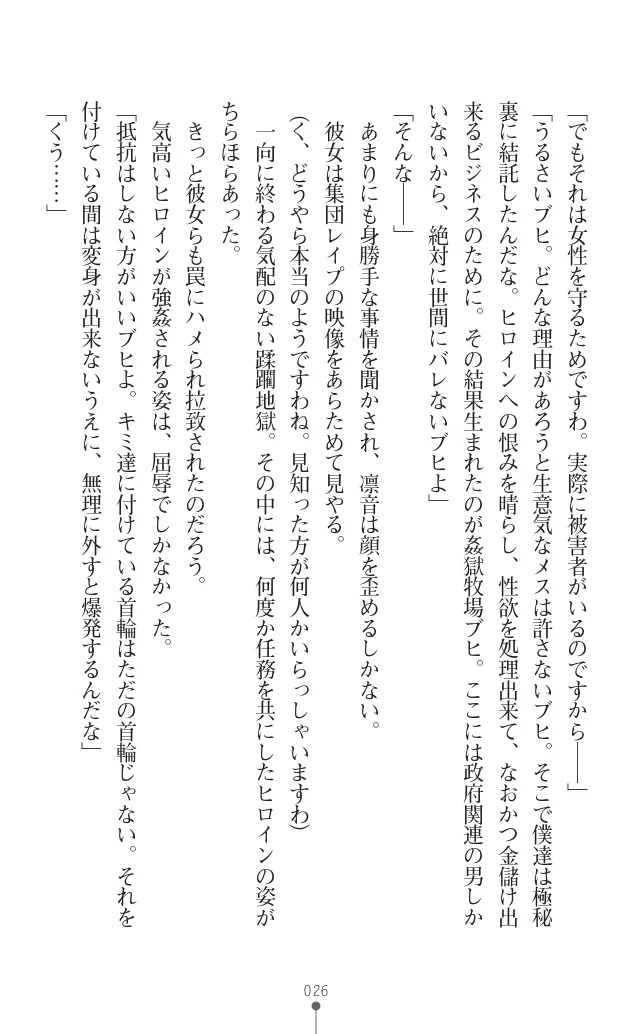 「でもそれは女性を守るためですわ。実際に被害者がいるのですから――」
「うるさいブヒ。どんな理由があろうと生意気なメスは許さないブヒ。そこで僕達は極秘
裏に結託したんだな。ヒロインへの恨みを晴らし、性欲を処理出来て、なおかつ金儲け出
来るビジネスのために。その結果生まれたのが姦獄牧場ブヒ。ここには政府関連の男しか
いないから、絶対に世間にバレないブヒよ」
「そんな――」
あまりにも身勝手な事情を聞かされ、凛音は顔を歪めるしかない。
彼女は集団レイプの映像をあらためて見やる。
(く、どうやら本当のようですわね。見知った方が何人かいらっしゃいますわ)
一向に終わる気配のない蹂躙地獄。その中には、何度か任務を共にしたヒロインの姿が
ちらほらあった。
きっと彼女らも罠にハメられ拉致されたのだろう。
気高いヒロインが強姦される姿は、屈辱でしかなかった。
「抵抗はしない方がいいブヒよ。キミ達に付けている首輪はただの首輪じゃない。それを
付けている間は変身が出来ないうえに、無理に外すと爆発するんだな」
「くう……」
026